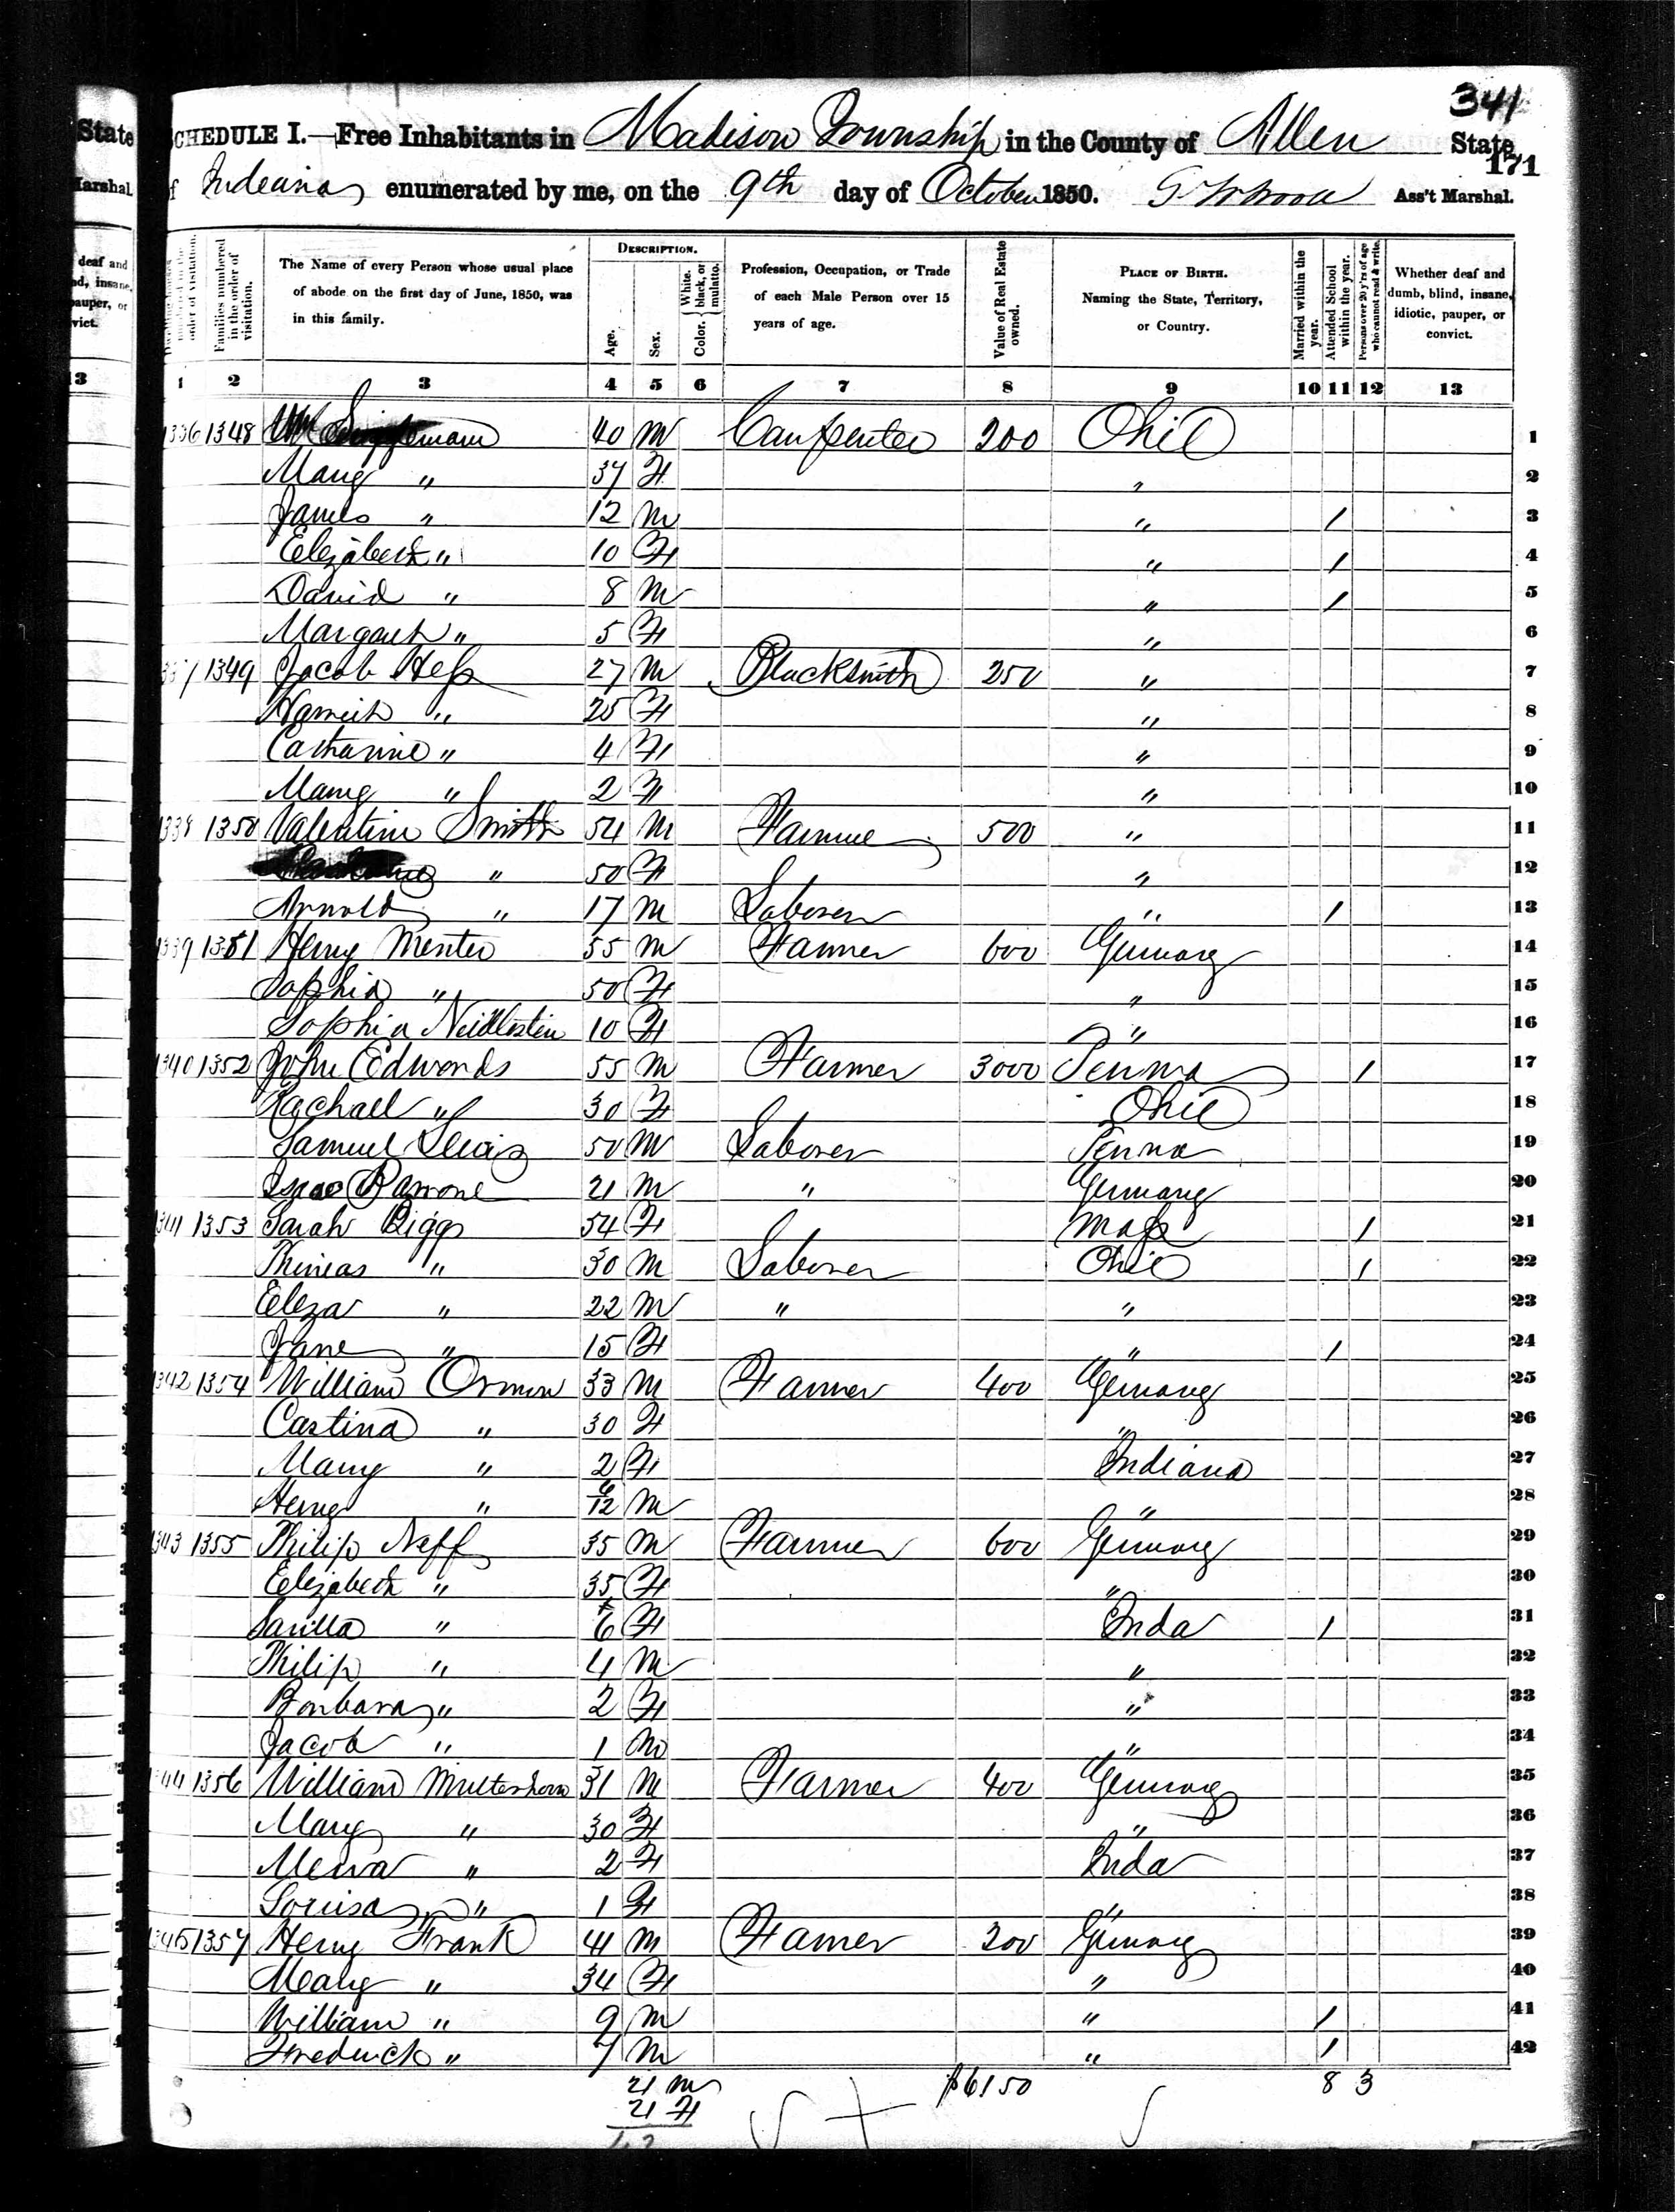 341
State
SCHEDULE I.—Free Inhabitants in Madison Township in the County of Allen State
171
Marshal. of Indiana enumerated by me, on the 9th day of October 1850. Ass't Marshal.
DESCRIPTION.
deaf and
insane,
pauper, or
vict.
order of visitation.
Families numbered in the order of visitation.
The Name of every Person whose usual place of abode on the first day of June, 1850, was in this family.
Age.
Sex.
Color. { White, black, or mulatto.
Profession, Occupation, or Trade of each Male Person over 15 years of age.
Value of Real Estate owned.
PLACE OF BIRTH. Naming the State, Territory, or Country.
Married within the year.
Attended School within the year.
Persons over 20 y'rs of age who cannot read & write.
Whether deaf and dumb, blind, insane, idiotic, pauper, or convict.
13 1 2 3 4 5 6 7 8 9 10 11 12 13
1336 1348 Wm 40 M Carpenter 200 Ohio 1
Mary " 37 F " 2
James " 12 M " / 3
Elezabeth " 10 F " / 4
David " 8 M " / 5
Margaret " 5 F " 6
1337 1349 Jacob Hess 27 M Blacksmith 250 " 7
" 25 F " 8
Catharine " 4 F " 9
Mary " 2 F " 10
1338 1350 Valentine Smith 54 M Farmer 500 " 11
" 50 F " 12
Arnold " 17 M Laborer " / 13
1339 1351 Henry Menter 55 M Farmer 600 Germany 14
Sophia " 50 F " 15
Sophia 10 F " 16
1340 1352 John Edwards 55 M Farmer 3000 Penna / 17
Rachall " 30 F Ohio 18
Samuel Lewis 50 M Laborer Penna 19
Isaac 21 M " Germany 20
1341 1353 Sarah Biggs 54 F Mass / 21
Phineas " 30 M Laborer Ohio / 22
Eleza " 22 M " " 23
Jane " 15 F " / 24
1342 1354 William Ormon 33 M Farmer 400 Germany 25
Castina " 30 F " 26
Mary " 2 F Indiana 27
Henry " 6/12 M " 28
1343 1355 Philip Neff 35 M Farmer 600 Germany 29
Elizabeth " 35 F " 30
Savilla " 6 F Inda / 31
Philip " 4 M " 32
Barbara " 2 F " 33
Jacob " 1 M " 34
1344 1356 William 31 M Farmer 400 Germany 35
Mary " 30 F " 36
" 2 F Inda 37
Louisa " 1 F " 38
1345 1357 Henry Frank 41 M Farmer 200 Germany 39
Mary " 34 F " 40
William " 9 M " / 41
Frederick " 7 M " / 42
21 M $6150 8 3
21 F
42